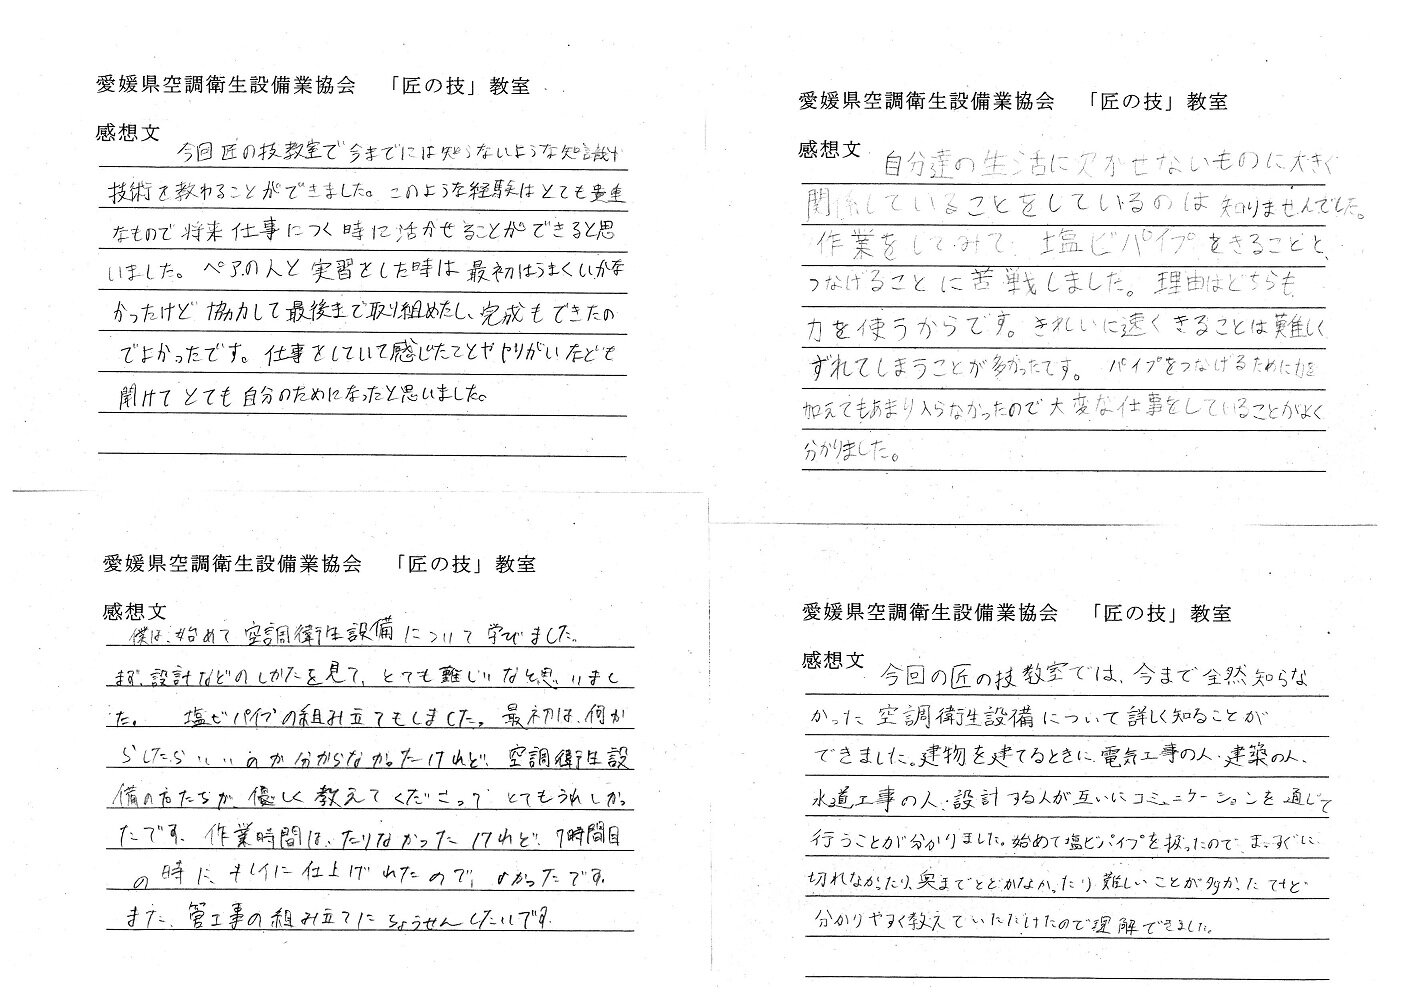 愛媛県空調衛生設備業協会 「匠の技」教室
感想文
今回匠の技教室で今までには知らないような知識や
技術を教わることができました。このような経験はとても貴重
なもので将来仕事につく時に活かせることができると思
いました。ペアの人と実習をした時は最初はうまくいかな
かったけど協力して最後まで取り組めたし、完成もできたの
でよかったです。仕事をしていて感じたことややりがいなども
聞けてとても自分のためになったと思いました。
愛媛県空調衛生設備業協会 「匠の技」教室
感想文
自分達の生活に欠かせないものに大きく
関係していることをしているのは知りませんでした。
作業をしてみて、塩ビパイプをきることと、
つなげることに苦戦しました。理由はどちらも
力を使うからです。きれいに速くきることは難しく
ずれてしまうことが多かったてす。パイプをつなげるために力を
加えてもあまり入らなかったので大変な仕事をしていることがよく
分かりました。
愛媛県空調衛生設備業協会 「匠の技」教室
感想文
僕は、始めて空調衛生設備について学びました。
まず、設計などのしかたを見て、とても難しいなと思いまし
た。 塩ビパイプの組み立てもしました。最初は、何か
らしたらいいのか分からなかったけれど、空調衛生設
備の方たちが、優しく教えてくださってとてもうれしかっ
たです。作業時間は、たりなかったけれど、7時間目
の時に、キレイに仕上げれたので、よかったです。
また、管工事の組み立てにちょうせんしたいです。
愛媛県空調衛生設備業協会 「匠の技」教室
感想文
今回の匠の技教室では、今まで全然知らな
かった空調衛生設備について詳しく知ることが
できました。建物を建てるときに、電気工事の人・建築の人、
水道工事の人・設計する人が互いにコミュニケーションを通じて
行うことが分かりました。始めて塩ビパイプを扱ったので、まっすぐに
切れなかったり、奥までとどかなかったり難しいことが多かったですけど
分かりやすく教えていただけたので理解できました。